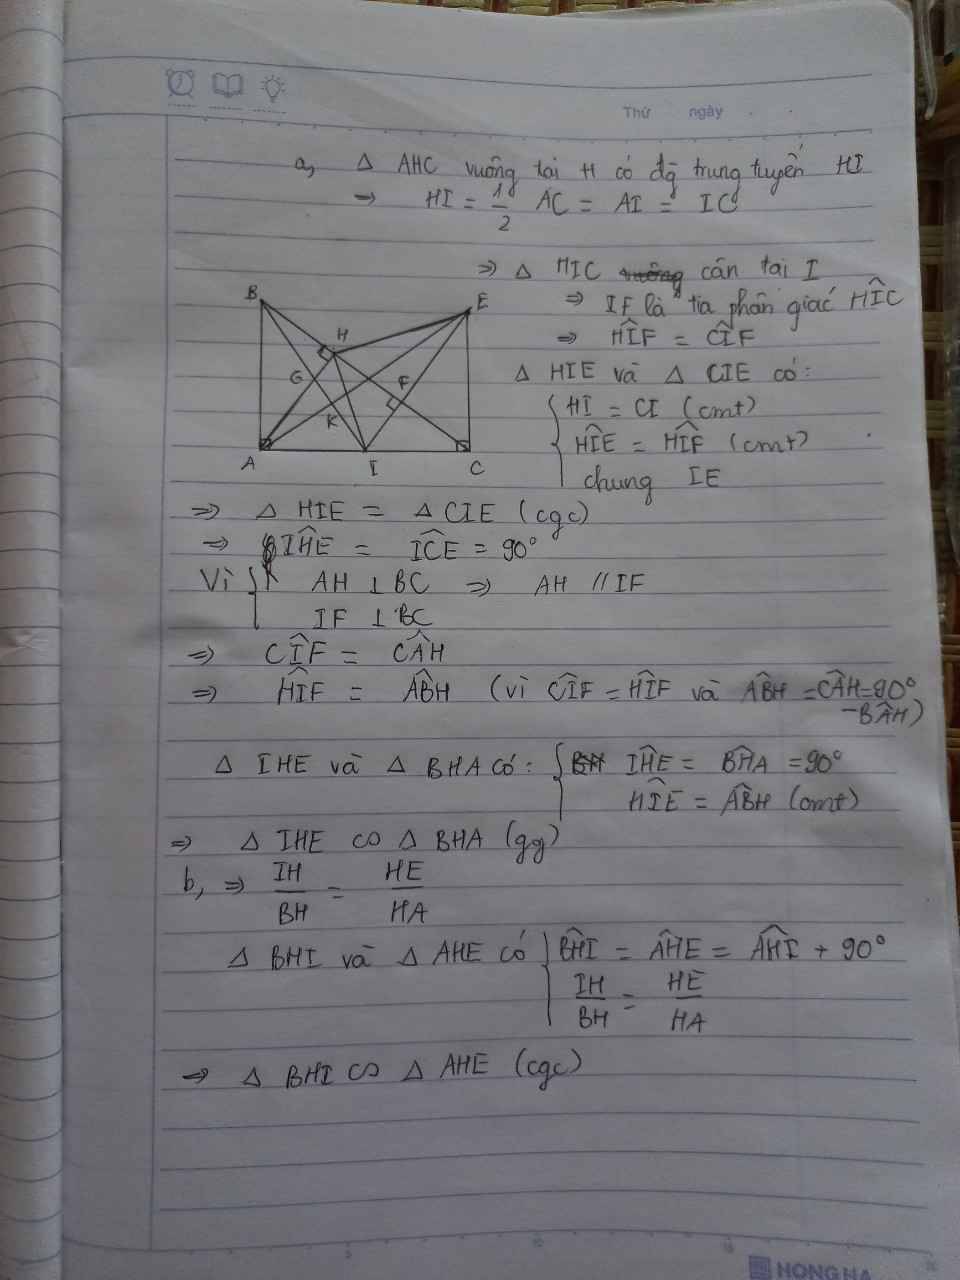 Thứ ngày
a, Δ AHC vuông tại H có đg trung tuyến HI
⇒ HI = 1/2 AC = AI = IC
⇒ Δ HIC cân tại I
⇒ IF là tia phân giác HÎC
⇒ HÎF = CÎF
B
E
H
G
F
K
A
I
C
Δ HIE và Δ CIE có:
HI = CI (cmt)
HÎE = HÎF (cmt)
chung IE
⇒ Δ HIE = Δ CIE (cgc)
⇒ IĤE = IĈE = 90°
Vì { AH ⊥ BC ⇒ AH // IF
IF ⊥ BC
⇒ CÎF = CÂH
⇒ HÎF = AB̂H (vì CÎF = HÎF và AB̂H = CÂH = 90°
- BÂH)
Δ IHE và Δ BHA có: { IĤE = BĤA = 90°
HÎE = AB̂H (cmt)
⇒ Δ IHE ∽ Δ BHA (gg)
b, ⇒ IH/BH = HE/HA
Δ BHI và Δ AHE có { BĤI = AĤE = AĤI + 90°
IH/BH = HE/HA
⇒ Δ BHI ∽ Δ AHE (cgc)
HONG HA